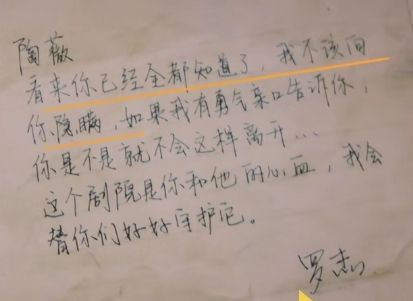 陶薇
看来你已经全都知道了，我不该向
你隐瞒，如果我有勇气亲口告诉你，
你是不是就不会这样离开...
这个剧院是你和他的心血，我会
替你们好好守护它。
罗杰